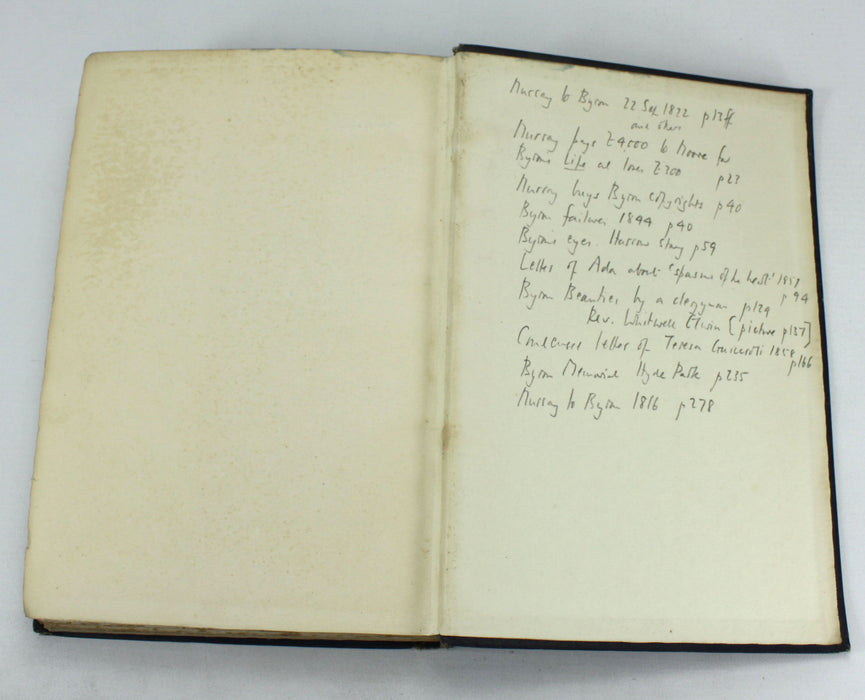 Murray to Byron 22 Sep 1822 p13ff
and others
Murray pays £4000 to Moore for
Byron's Life at loss £300 p23
Murray buys Byron copyrights p40
Byron failures 1844 p40
Byron's eyes. Harrow story p59
Letter of Ada about 'spasms of the heart' 1851
p94
Byron Beauties by a clergyman p129
Rev. Whitwell Elwin [picture p137]
letter of Teresa Guiccioli 1858
p166
Byron Memorial Hyde Park p235
Murray to Byron 1816 p278